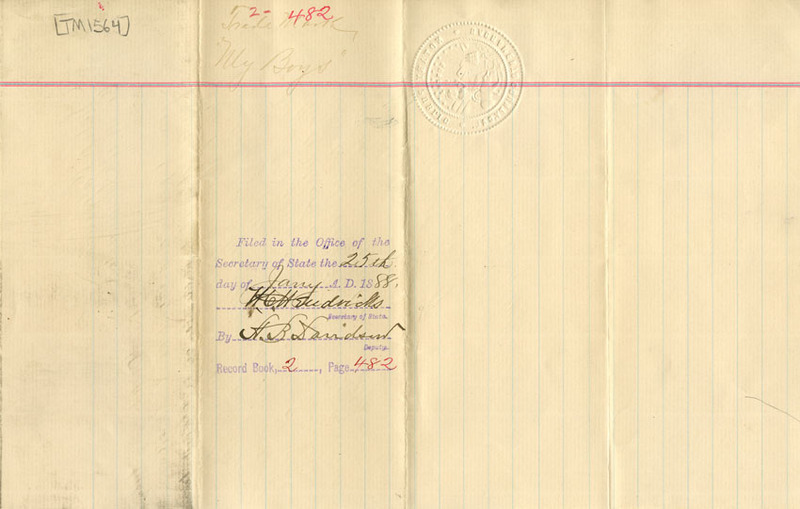 [TM1564]
2- 482
Trade Mark
"My Boys"
Filed in the Office of the
Secretary of State the 25th
day of Jany A. D. 1888.
Secretary of State.
By A. B. Davidson
Deputy.
Record Book, 2, Page 482